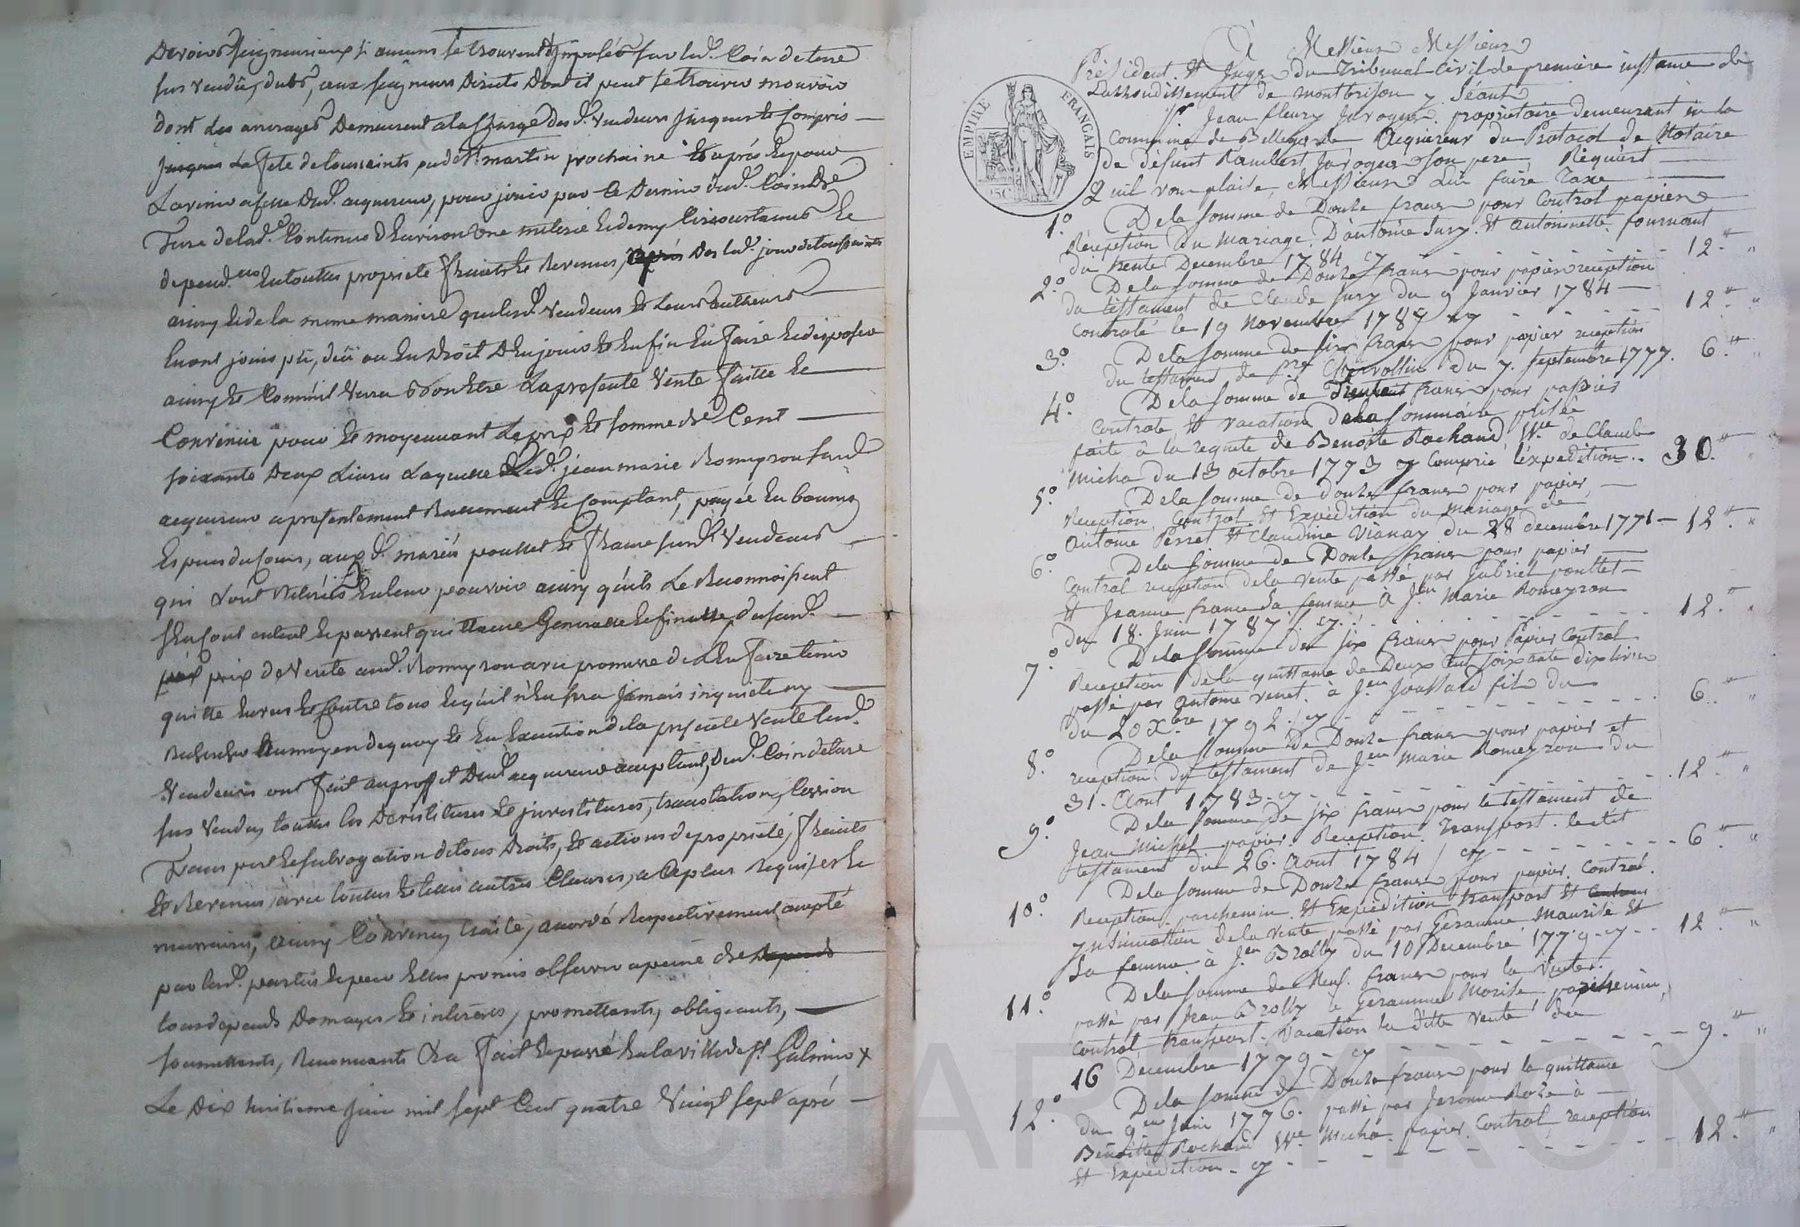 Devoirs seigneuriaux si aucuns se trouvent imposés sur lad. Coin de terre
sus vendûe, dubs aux seigneurs directs dont il peut se trouver mouvoir
dont les arrerages demeurent a la charge desd. Vendeurs jusques et compris
jusques La fete de toussaints, ou de St martin prochaine Et aprèsEpoux
L'avenir a celle dud. acquereur, pour jouir par Ce Dernier dud. Coin de
Terre de lad. Continue d'Environ une meterée Et demy Circonstances Et
dependces En toutte propriete fruits Et Revenus, après Des led. jour de toussaints
ainsy Et de la meme maniere que lesd. Vendeurs Et Leurs autheurs
En ont jouis pû, dûü ou Eu droit D'En jouir Et Enfin En Faire Et disposer
ainsy Et Comm'il Verra bon Etre La presente Vente faitte Et
Convenüe pour Et moyennant Le prix Et somme de Cent
soixante Deux Livres Laquelle Led. jean marie Romeyron sard.
acquereur a presentement Reellement Et Comptant, payée En bonnes
Especes du Cours, aux d. mariés pouttet Et France susd. Vendeurs
qui L'ont Retirées En leur pouvoir ainsy qu'ils Le Reconnoissent
S'En sont content Et passent quittance Generalle Et finalle, du susd.
prix prix de Vente aud. Romeyron avec promesse de L'En faire tenir
quitte Envers Et Contre tous Et qu'il n'En sera jamais inquieté ny
Recherché Au moyen de quoy Et En Execution de la presente Vente Lesd.
Vendeurs ont fait au proffit Dud. acquereur acceptant, dud. Coin de terre
sus Vendu, touttes les Devestitures Et investitures, translation, Cession
Transport Et subrogation de tous Droits, Et actions de propriété, fruits
Et Revenus, avec touttes Et Leurs autres Clauses, a Ce plus Requises Et
necessaires, ainsy Convenu, traité, accordé Respectivement accepté
par lesd. parties Et par Elles promis observer a peine de Depends
tous depends Domages Et interets, promettants, obligeants,
soumettants, Renonceants &a Fait Et passé En la ville de St. Galmier x
Le Dix huitieme juin mil sept Cent quatre Vingt sept après
A Messieurs Messieurs
Président Et Juges du Tribunal Civil de première instance de
Larrondissement de Montbrison y Séant
EMPIRE FRANÇAIS
Sr Jean fleury Javogues propriétaire demeurant en la
Commune de Bellegarde Acquereur du Protocol de Notaire
de défunt Rambert Javogues son pere, Requiert
Quil vous plaise, Messieurs Lui faire Taxe
1.° Dela somme de Douze francs pour Control papiers
Réception du Mariage D'antoine Jury Et Antoinette fournant
du trente Decembre 1784 cy 12. "
2.° Dela somme de Douze francs pour papier reception
du testament de Claude Jury du 9 Janvier 1784
Controlé le 19 Novembre 1788 cy 12. "
3.° Dela somme de six francs pour papier reception
du testament de pre Chervollin du 7. Septembre 1777. 6. "
4.° Dela somme de Trente francs pour papiers
Controle Et vacation dela sommaire prisée
faite à la requete de Benoite Rochand Ve de Claude
Micha du 13 octobre 1773 cy Compris l'expedition.. 30. "
5.° Dela somme de douze francs pour papier,
Reception, Control Et Expédition du Mariage de
Antoine Perret Et Claudine Vianay du 28 decembre 1771 — 12. "
6.° Dela Somme de Douze francs pour papier
Control reception dela vente passé par Gabriel pouttet
Et Jeanne france sa femme à Jn Marie Romeyron
du 18. Juin 1787 / cy 12. "
7.° Dela somme de six francs pour Papier Control
Reception de la quittance de Deux Cent soixante dix livres
passé par Antoine Venet à Jn Joussard fils du
du 20 Xbre 1792 / cy 6. "
8.° Dela somme de Douze francs pour papier et
reception du testament de Jn Marie Romeyron du
31. Aout 1783. cy 12. "
9.° Dela somme de six francs pour le testament de
Jean Michel papier Reception Transport. le dit
testament du 26. Aout 1784 / cy 6. "
10.° Dela somme de Douze francs pour papier, Control.
Reception, parchemin Et Expédition transport Et Control
ynsinuation dela vente passé par Géramme Maurise Et
Sa femme à Jn Brolly du 10 Decembre 1779 cy 12. "
11.° Dela somme de Neuf francs pour la Vente
passé par Jean Brolly à Geramme Morise, parchemin,
Control transport. Vacation la ditte vente du
16 Decembre 1779 - cy 9. "
12.° Dela somme de Douze francs pour la quittance
du 9me Juin 1776. passé par Jerome Roze à
Benoitte Rochand Ve Micha. papier. Control reception
Et Expédition - cy 12. "
CHARTEYRON